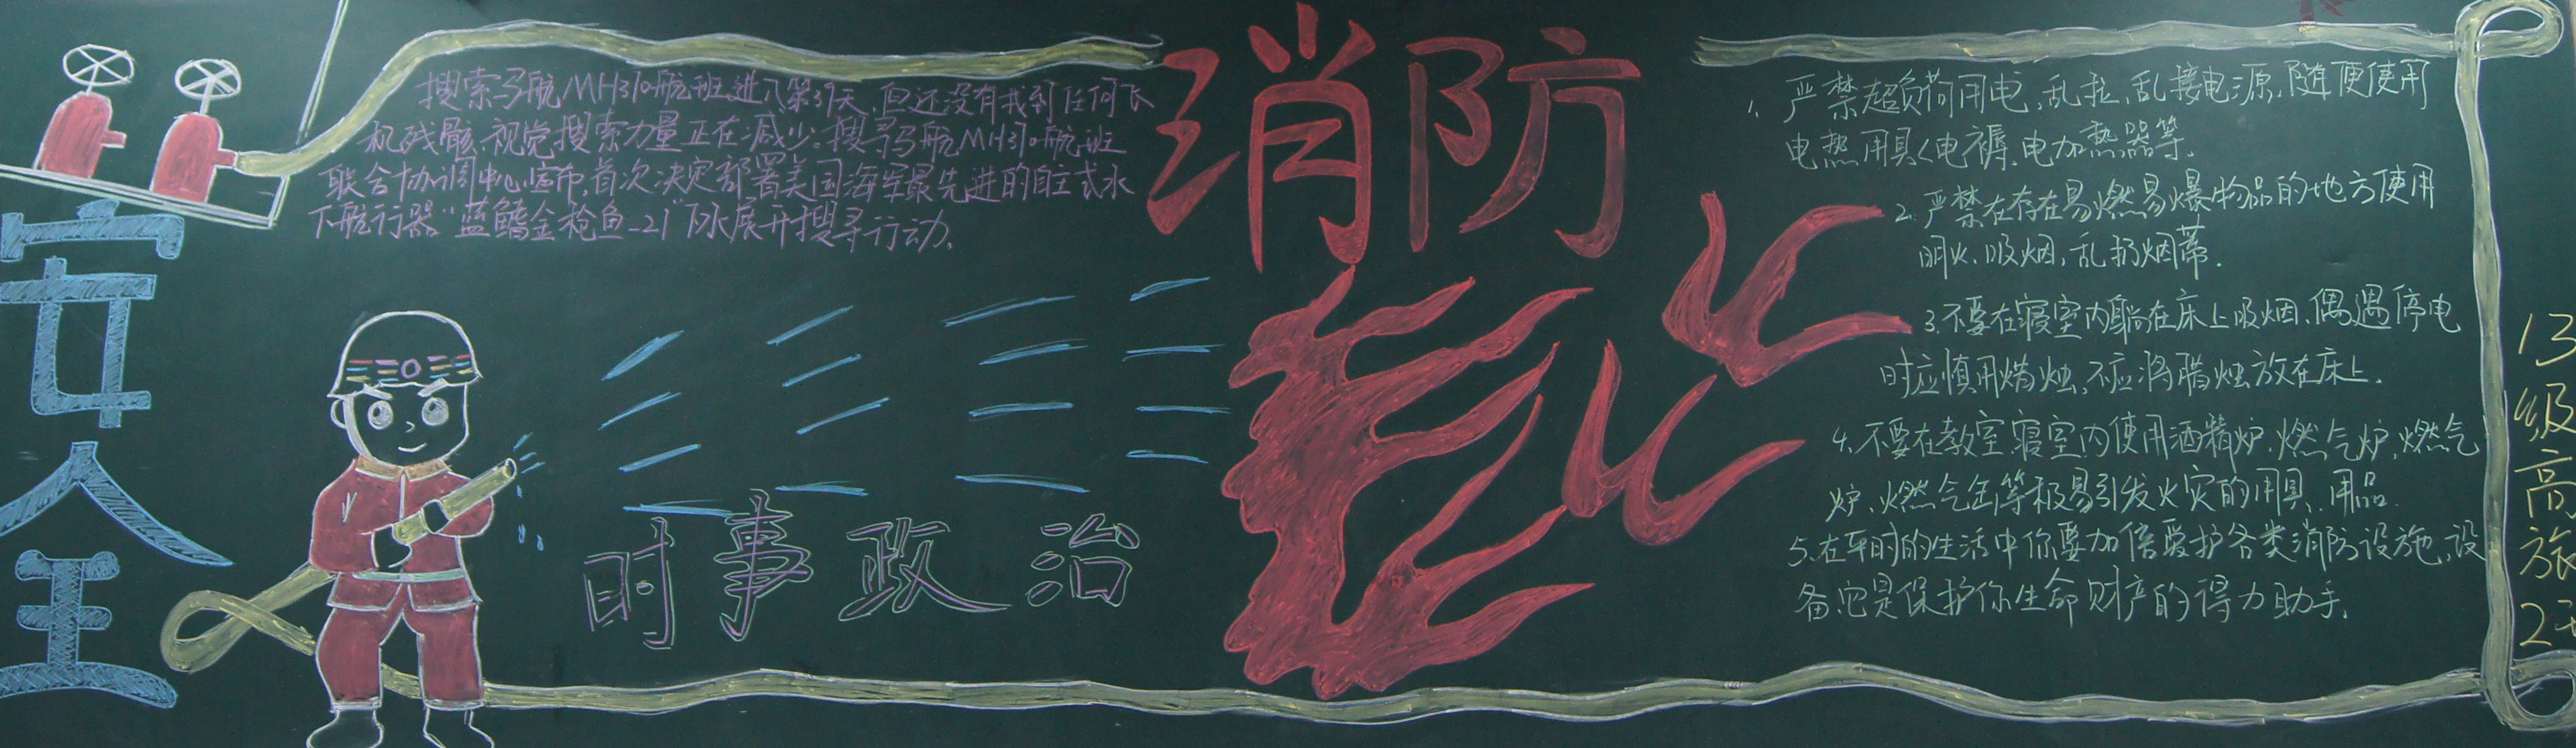 消防
安全
搜索马航MH370航班进入第39天,但还没有找到任何飞
机残骸,视觉搜索力量正在减少。搜寻马航MH370航班
联合协调中心宣布,首次决定部署美国海军最先进的自主式水
下航行器“蓝鳍金枪鱼-21”下水展开搜寻行动。
时事政治
1.严禁超负荷用电,乱拉,乱接电源,随便使用
电热用具<电褥、电加热器等.
2.严禁在存在易燃易爆物品的地方使用
明火、吸烟,乱扔烟蒂.
3.不要在寝室内躺在床上吸烟、偶遇停电
时应慎用烛,不应将腊烛放在床上.
4.不要在教室寝室内使用酒精炉、燃气炉、燃气
炉、燃气缶等极易引发火灾的用具、用品.
5.在平时的生活中你要加倍爱护各类消防设施、设
备,它是保护你生命财产的得力助手.
13级高旅2